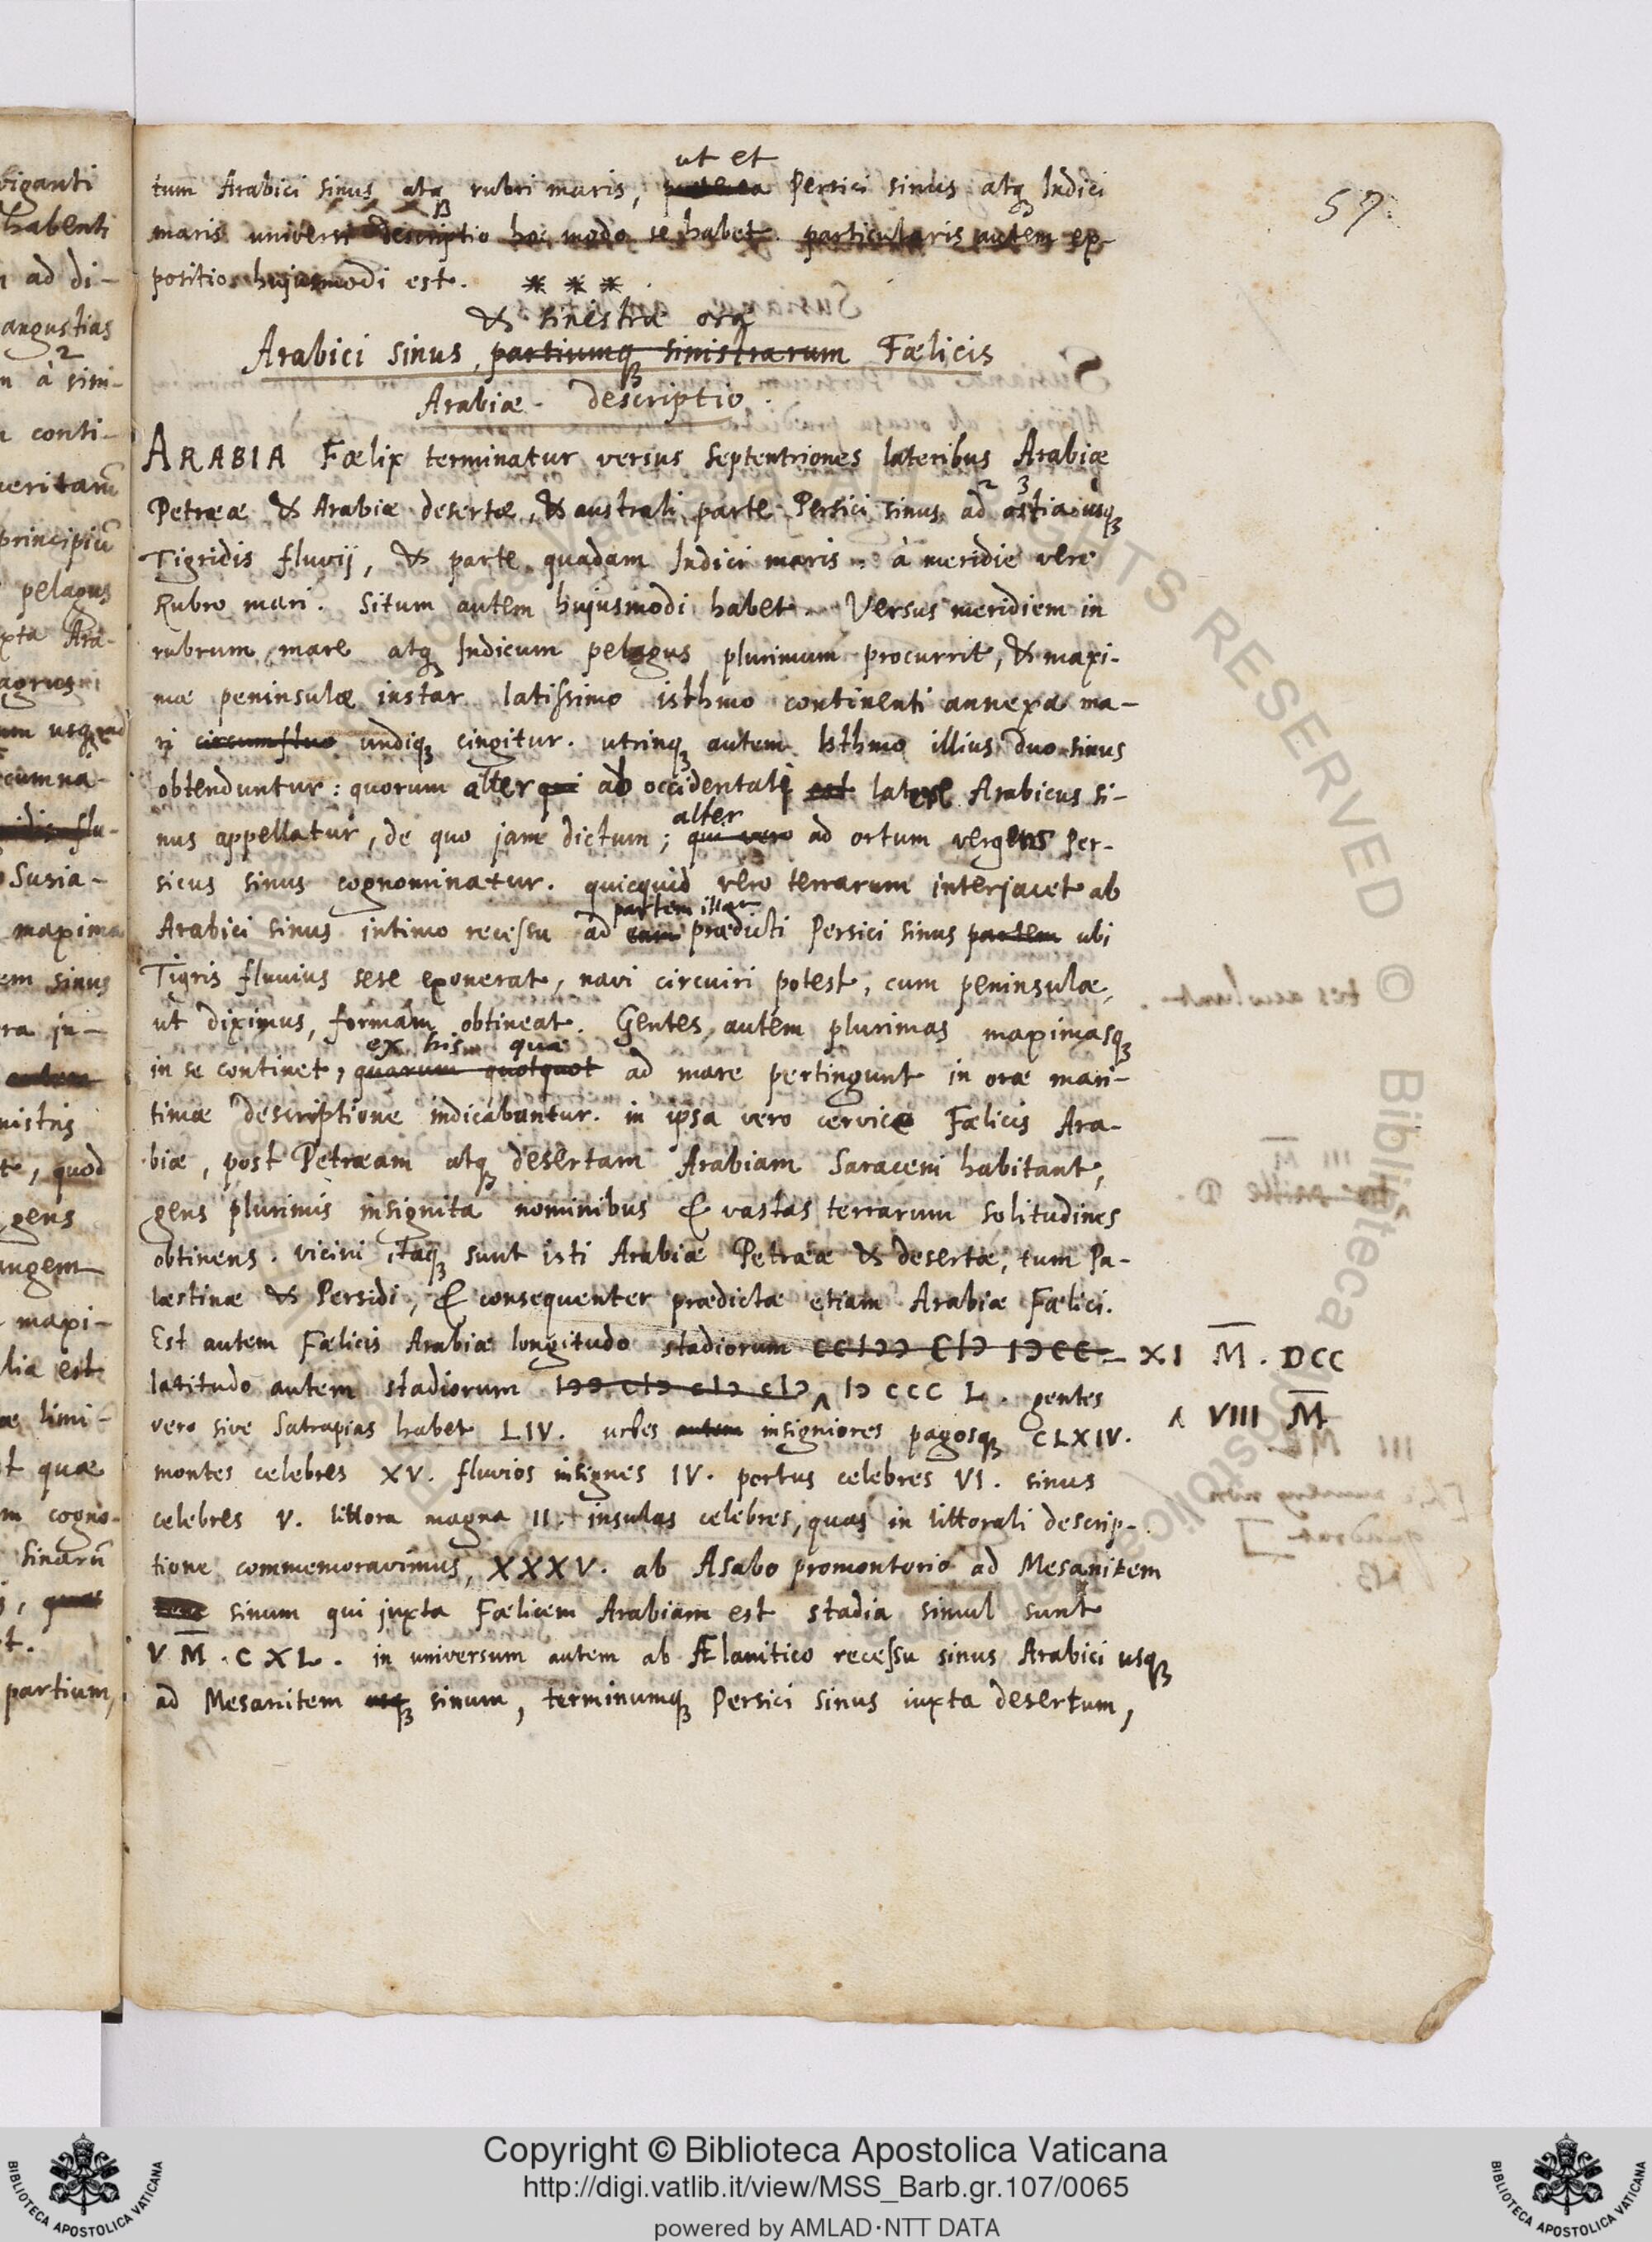 57.
ut et
tum Arabici sinus atq rubri maris, Persici sinus atq Indici
maris universi descriptio hoc modo se habet. particularis autem ex-
positio hujusmodi est. * * *
& sinistræ oræ
Arabici sinus, partiumq sinistrarum Fælicis
Arabiæ descriptio.
ARABIA Fælix terminatur versus Septentriones lateribus Arabiæ
Petrææ & Arabiæ desertæ, & australi parte Persici sinus ad ostia usq
Tigridis fluvij, & parte quadam Indici maris. à meridie vero
Rubro mari. Situm autem hujusmodi habet. Versus meridiem in
rubrum mare atq Indicum pelagus plurimum procurrit, & maxi-
mæ peninsulæ instar latissimo isthmo continenti annexa ma-
ri circumfluo undiq cingitur. utrinq autem Isthmo illius duo sinus
obtenduntur: quorum alter qui ab occidentali est latere Arabicus si-
alter
nus appellatur, de quo jam dictum; qui vero ad ortum vergens Per-
sicus sinus cognominatur. quicquid vero terrarum interjacet ab
partem illam
Arabici sinus intimo recessu ad eam prædicti Persici sinus partem ubi
Tigris fluvius sese exonerat, navi circuiri potest, cum peninsulæ,
ut diximus, formam obtineat. Gentes autem plurimas maximasq
ex his quæ
in se continet, quarum quotquot ad mare pertingunt in oræ mari-
timæ descriptione indicabuntur. in ipsa vero cervice Fælicis Ara-
biæ, post Petræam atq desertam Arabiam Saraceni habitant,
gens plurimis insignita nominibus & vastas terrarum solitudines
obtinens. vicini itaq sunt isti Arabiæ Petrææ & desertæ, tum Pa-
læstinæ & Persidi, & consequenter prædictæ etiam Arabiæ Fælici.
Est autem Fælicis Arabiæ longitudo stadiorum CCIƆƆ CIƆ IƆCC XI M. DCC
latitudo autem stadiorum IƆƆ CIƆ CIƆ CIƆ ʌ IƆ CCC L. gentes
ʌ VIII M
vero sive Satrapias habet LIV. urbes autem insigniores pagosq CLXIV.
montes celebres XV. fluvios insignes IV. portus celebres VI. sinus
celebres V. littora magna II. insulas celebres, quas in littorali descrip-
tione commemoravimus, XXXV. ab Asabo promontorio ad Mesanitem
sinum qui juxta Fælicem Arabiam est stadia simul sunt
V M. CXL. in universum autem ab Ælanitico recessu sinus Arabici usq
ad Mesanitem usq sinum, terminumq Persici sinus iuxta desertum,
viganti
habenti
ad di-
angustias
2
à sini-
conti-
principiũ
pelagus
xta Ara-
Susia-
maxima
em sinus
nistris
quod
gens
maxi-
lia est
limi-
quæ
cogno-
sinarũ
partium,
Copyright © Biblioteca Apostolica Vaticana
http://digi.vatlib.it/view/MSS_Barb.gr.107/0065
powered by AMLAD·NTT DATA
BIBLIOTECA APOSTOLICA VATICANA
BIBLIOTECA APOSTOLICA VATICANA